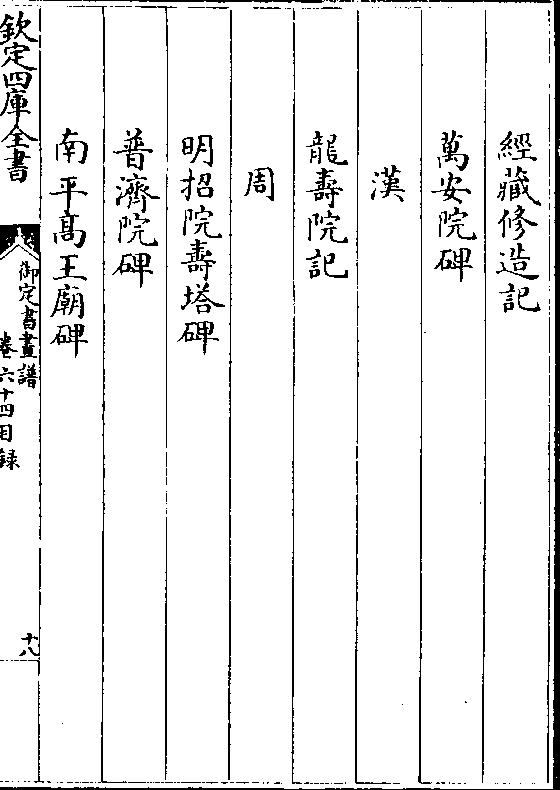 經藏修造記
萬安院碑
漢
龍壽院記
周
明招院壽塔碑
普濟院碑
南平高王廟碑
欽定四庫全書
御定書畫譜
卷六十四目録
十八